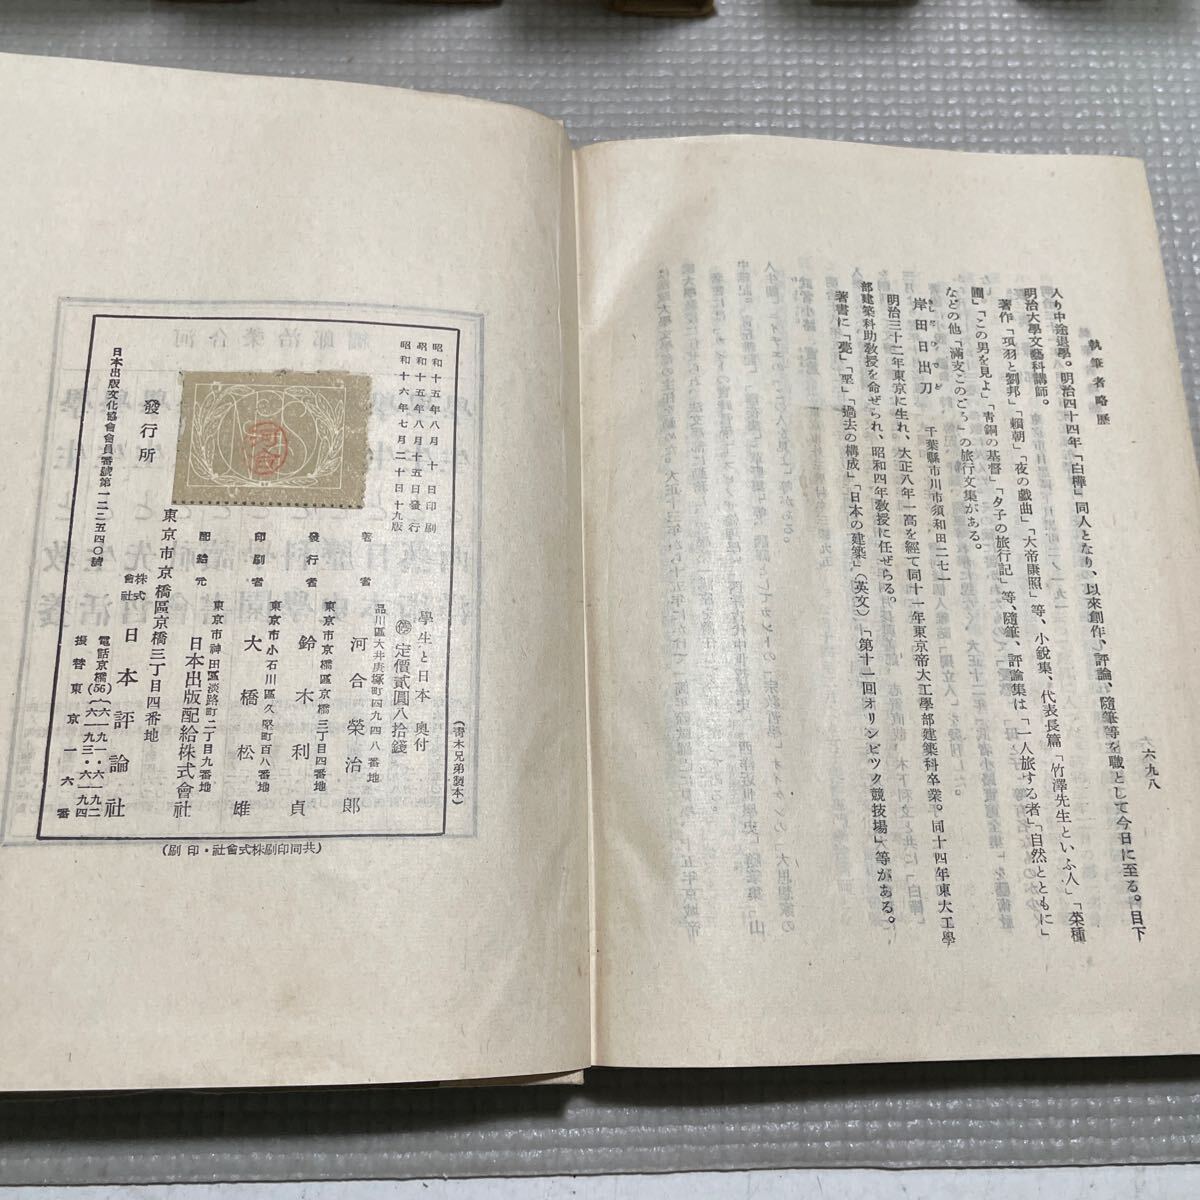 執筆者略歴
六九八
入り中途退學。明治四十四年「白樺」同人となり、以來創作、評論、隨筆等を職として今日に至る。目下
明治大學文藝科講師。
著作「項羽と劉邦」「賴朝」「夜の戯曲」「大帝康熙」等、小說集、代表長篇「竹澤先生といふ人」「菜種
圃」「この男を見よ」「青銅の基督」「夕子の旅行記」等、隨筆、評論集は「一人旅する者」「自然とともに」
などの他「滿支このごろ」の旅行文集がある。
岸田日出刀 千葉縣市川市須和田二七一
明治三十二年東京に生れ、大正八年一高を經て同十一年東京帝大工學部建築科卒業。同十四年東大工學
部建築科助敎授を命ぜられ、昭和四年敎授に任ぜらる。
著書に「甍」「堊」「過去の構成」「日本の建築」(英文)「第十一回オリンピック競技場」等がある。
學生と日本 奧付
(靑木兄弟製本)
定價貳圓八拾錢
昭和十五年八月十日印刷
昭和十五年八月十五日發行
昭和十六年七月二十日十九版
河合
品川區大井庚塚町四九四八番地
著者 河合榮治郎
東京市京橋區京橋三丁目四番地
發行者 鈴木利貞
東京市小石川區久堅町百八番地
印刷者 大橋松雄
東京市神田區淡路町二丁目九番地
配給元 日本出版配給株式會社
東京市京橋區京橋三丁目四番地
發行所 株式會社 日本評論社
電話京橋(56)(六一九一・六一九二 六一九三・六一九四
振替東京一六番
日本出版文化協會會員番號第一二二五四〇號
(共同印刷株式會社・印刷)